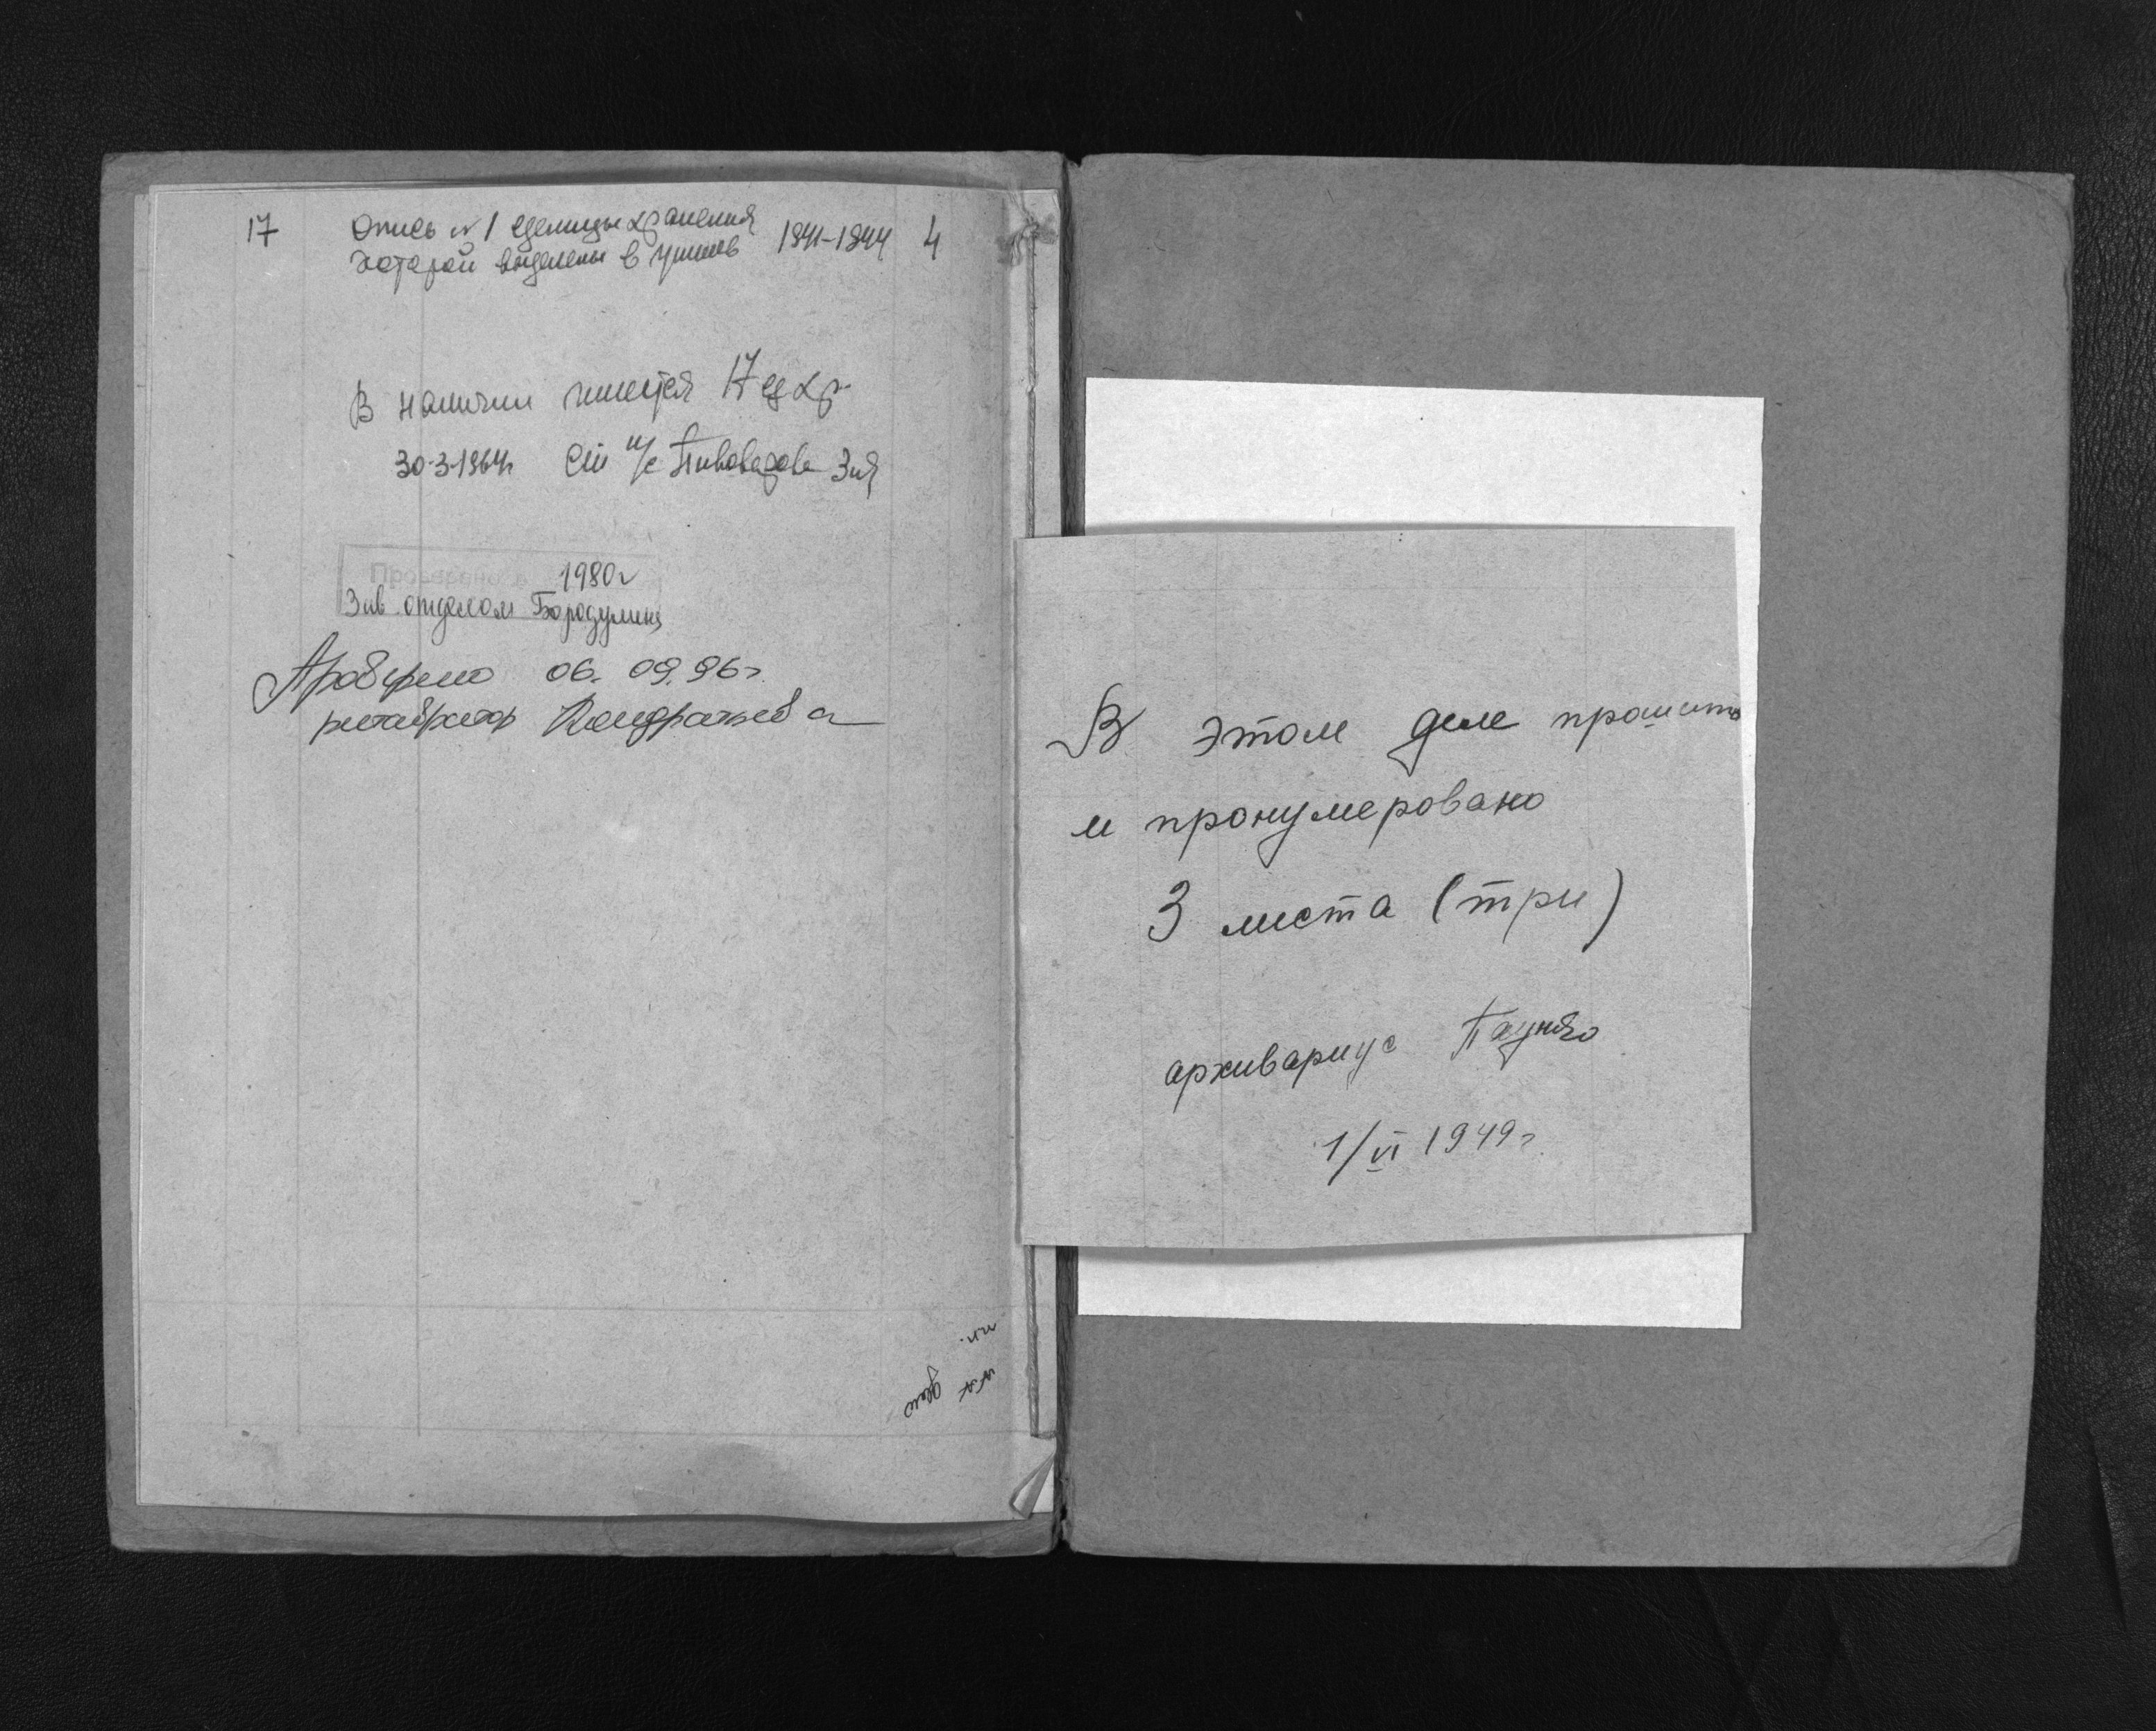 17 Опись № 1 единицы хранения 1941-1944 4
которой выделены в утиль
В наличии имеется 17 ед хр.
30-3-1964г Ст н/с Пивоварова
Проверено
1980г
Зав. отделом Бородулина
Проверено 06. 09. 96г.
реставратор Кондратьева
В этом деле прошито
и пронумеровано
3 листа (три)
архивариус
1/VI 1949г.